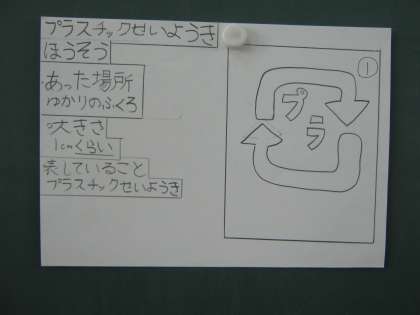 プラスチックせいようき
ほうそう
・あった場所
ゆかりのふくろ
○大きさ
1cmくらい
表していること
プラスチックせいようき
①
プラ